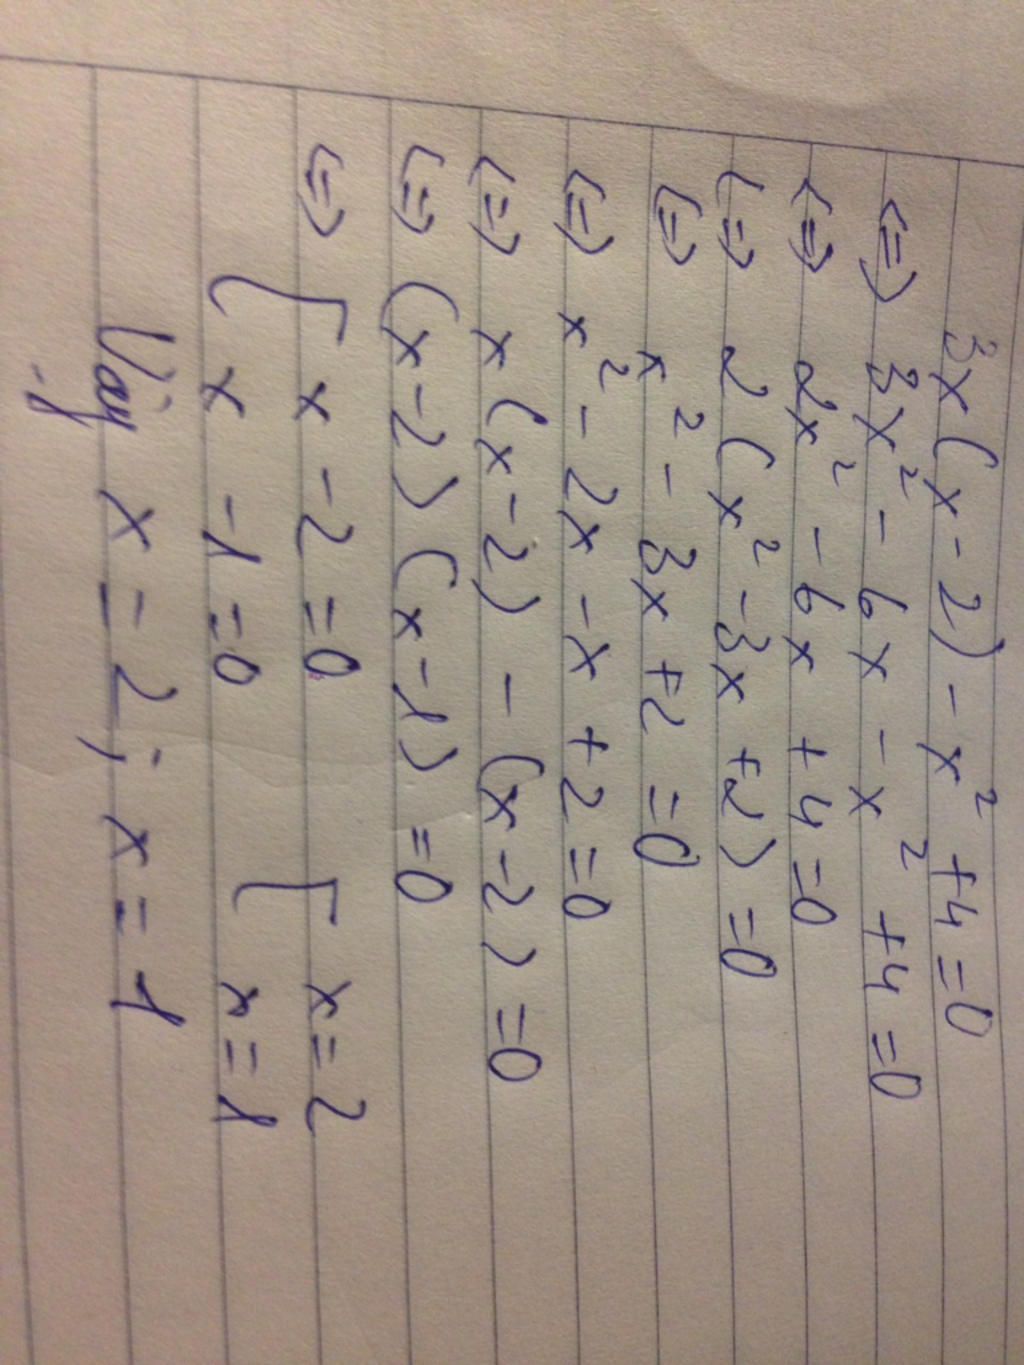 3x(x-2) - x² + 4 = 0
<=> 3x² - 6x - x² + 4 = 0
<=> 2x² - 6x + 4 = 0
<=> 2(x² - 3x + 2) = 0
<=> x² - 3x + 2 = 0
<=> x² - 2x - x + 2 = 0
<=> x(x-2) - (x-2) = 0
<=> (x-2)(x-1) = 0
<=> [ x - 2 = 0 [ x = 2
x - 1 = 0 x = 1
Vậy x = 2; x = 1